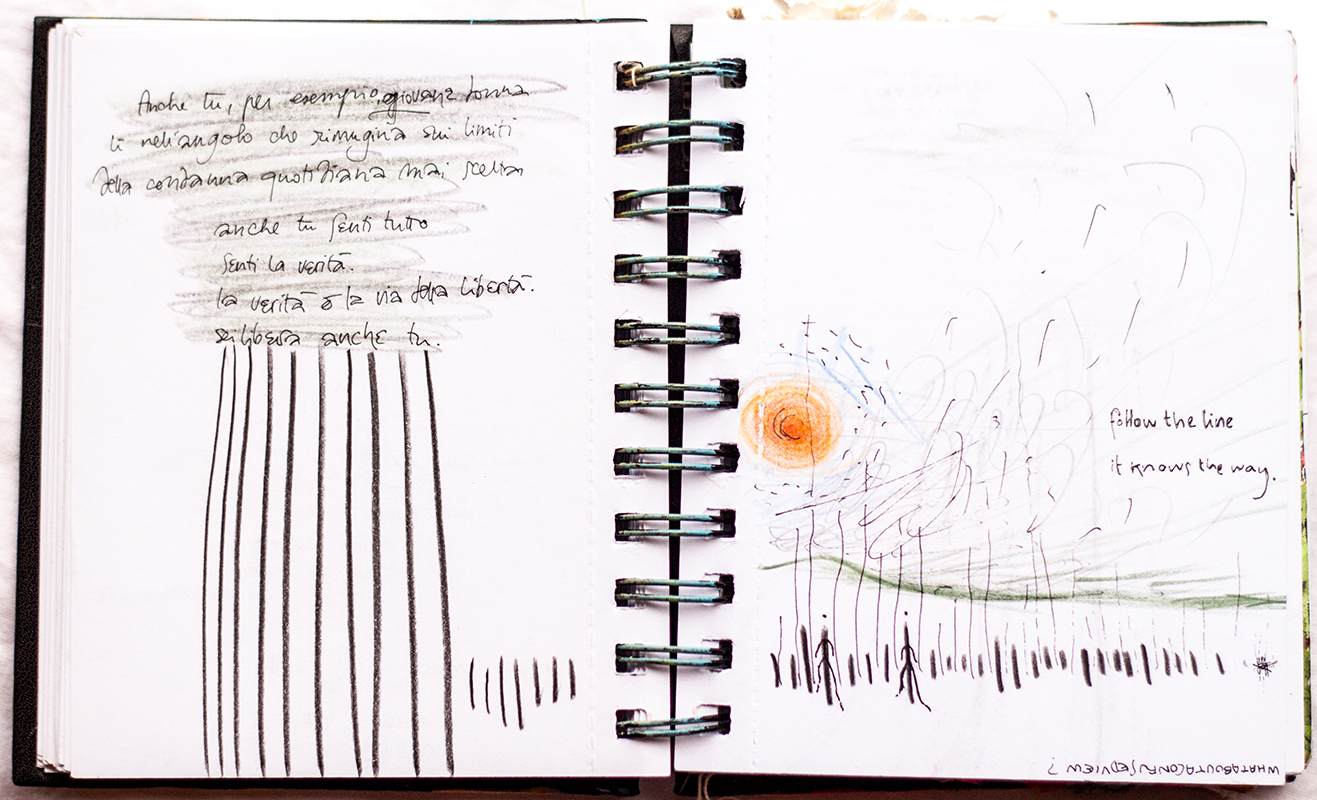 Anche tu, per esempio, giovane donna
lì nell'angolo che rimugina sui limiti
della condanna quotidiana mai scelta
anche tu senti tutto
senti la verità.
la verità è la via della libertà.
sii libera anche tu.
follow the line
it knows the way.
WHATABOUTACONFUSEDVIEW?